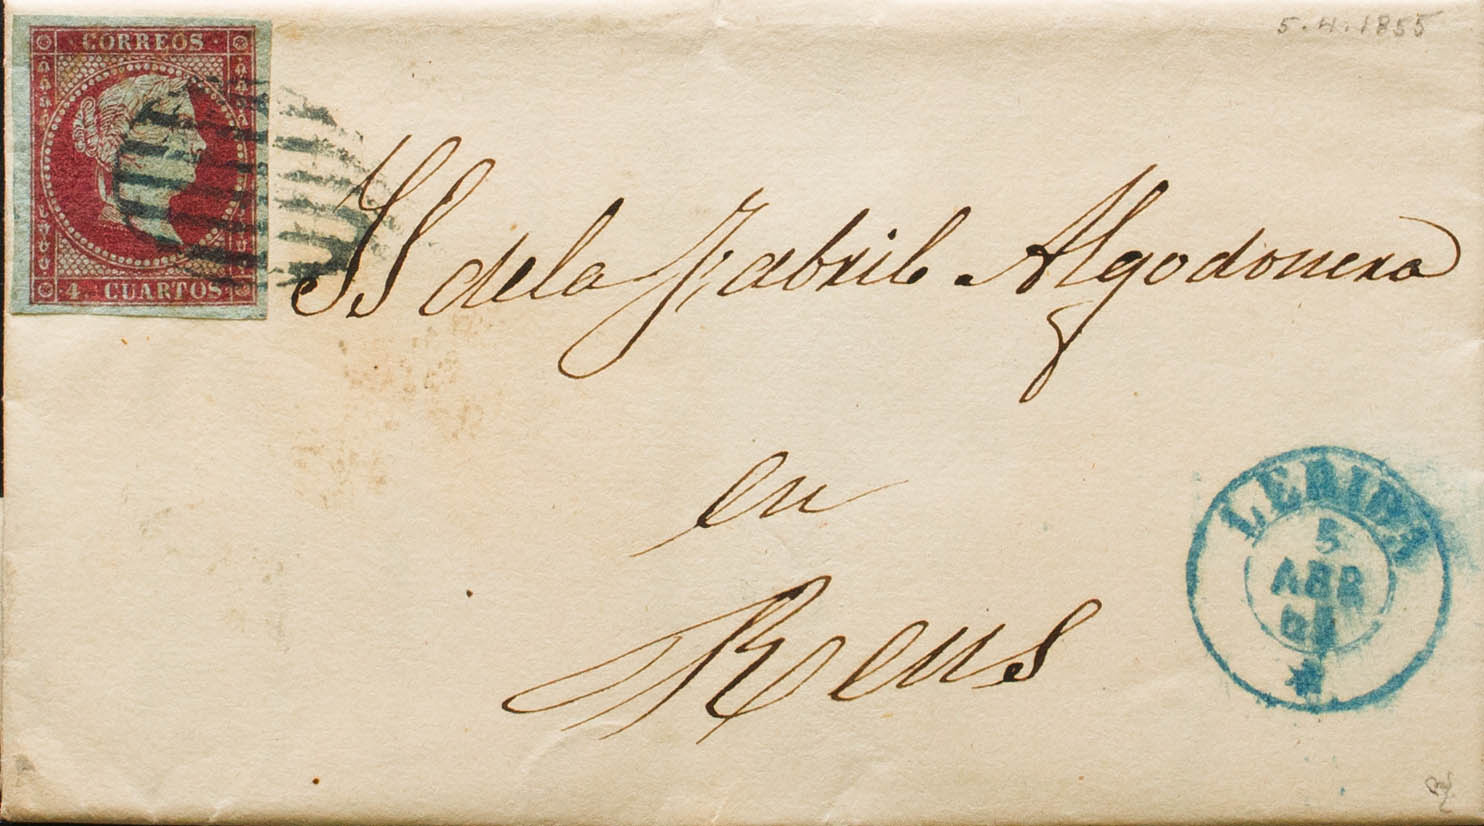 CORREOS
4. CUARTOS.
5.4.1855
SS de la Fabril Algodonera
en
Reus
LERIDA
5
ABR